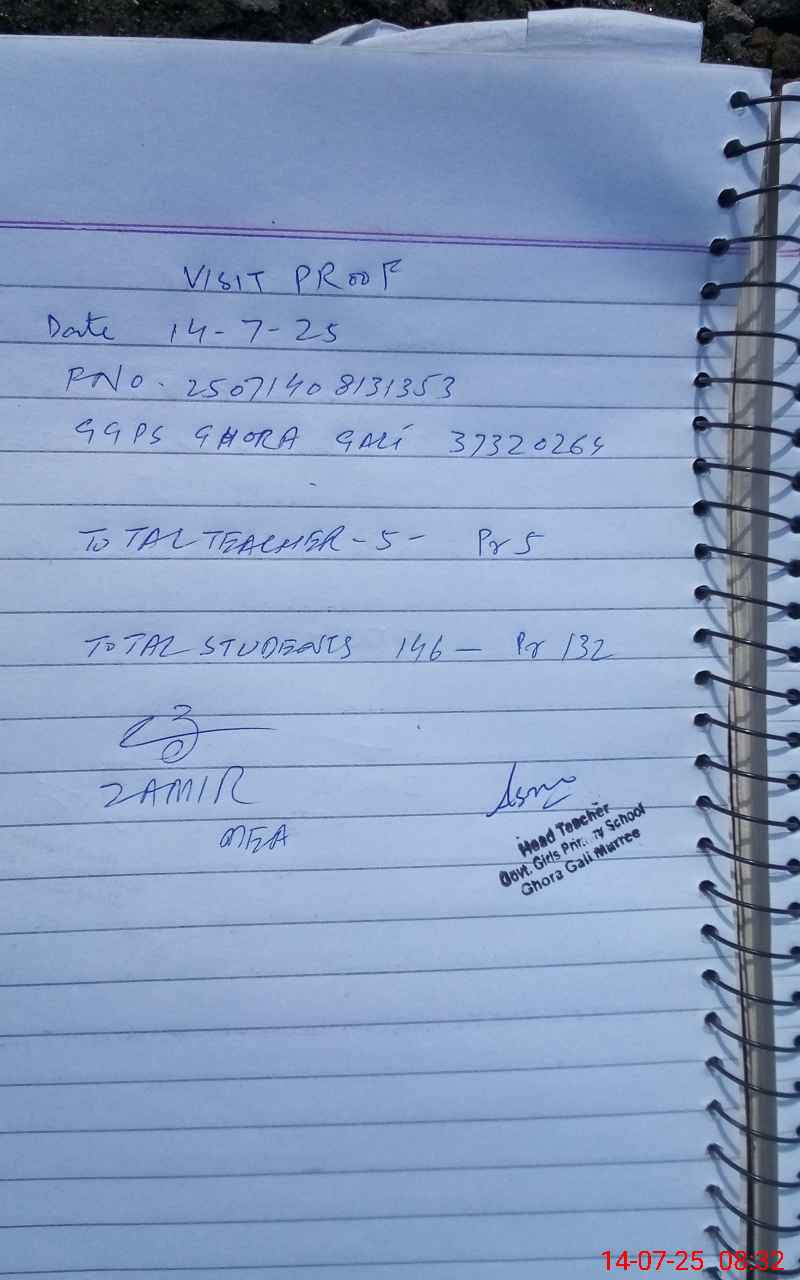 VISIT PROOF
Date 14-7-25
PNO. 25071408131353
GGPS GHORA GALI 37320264
TOTAL TEACHER - 5 - Pr 5
TOTAL STUDENTS 146 - Pr 132
ZAMIR
MEA
Head Teacher
Govt. Girls Primary School
Ghora Gali Murree
14-07-25 08:32